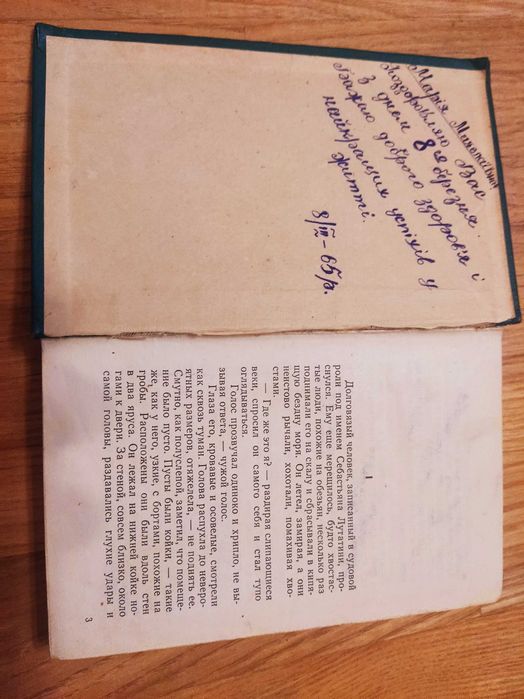 Марія Михайлівно
поздоровляю Вас
з днем 8го березня.
Бажаю доброго здоров'я і
найкращих успіхів у
житті.
8/III – 65 р.
I
Долговязый человек, записанный в судовой
роли под именем Себастьяна Лутатини, про-
снулся. Ему еще мерещилось, будто хвостас-
тые люди, похожие на обезьян, несколько раз
поднимали его на скалу и сбрасывали в кипя-
щую бездну моря. Он летел, замирая, а они
неистово рычали, хохотали, помахивая хво-
стами.
— Где же это я? — раздирая слипающиеся
веки, спросил он самого себя и стал тупо
оглядываться.
Голос прозвучал одиноко и хрипло, не вы-
зывая ответа, — чужой голос.
Глаза его, кровавые и осовелые, смотрели
как сквозь туман. Голова распухла до неверо-
ятных размеров, отяжелела, — не поднять ее.
Смутно, как полуслепой, заметил, что помеще-
ние было пусто. Пусты были койки, — такие
же, как у него, узкие, с бортами, похожие на
гробы. Расположены они были вдоль стен
в два яруса. Он лежал на нижней койке но-
гами к двери. За стеной, совсем близко, около
самой головы, раздавались глухие удары и
3